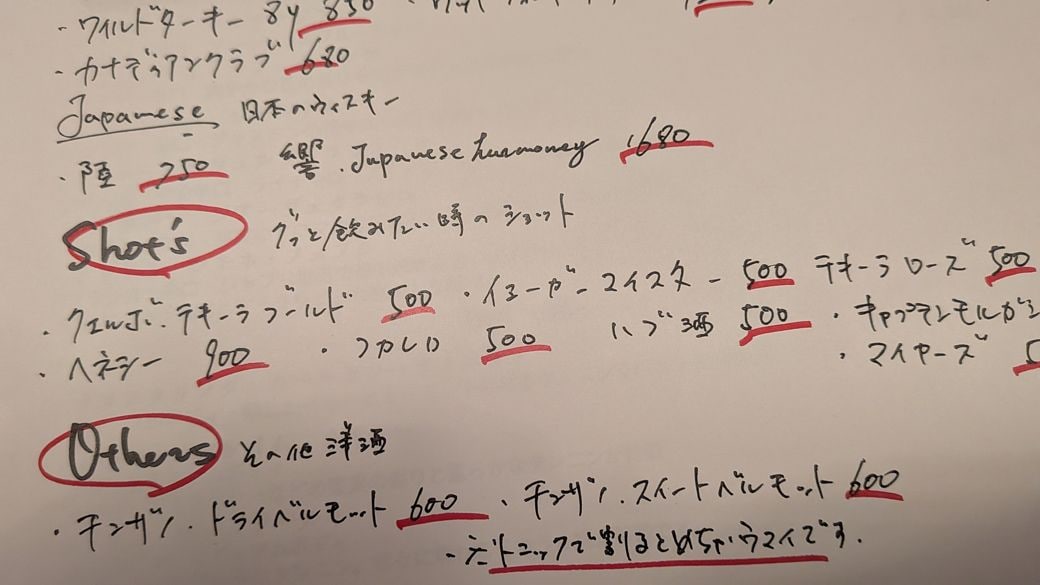 ・ワイルドターキー 8y 850
・カナディアンクラブ 680
Japanese 日本のウィスキー
・陸 750 響 . Japanese harmoney 1680
Shot's グッと飲みたい時のショット
・クエルボ・テキーラゴールド 500 ・イエーガーマイスター 500 テキーラローズ 500
・ヘネシー 900 ・コカレロ 500 ハブ酒 500 ・キャプテンモルガン
・マイヤーズ
Others その他洋酒
・チンザノ.ドライベルモット 600 ・チンザノ.スイートベルモット 600
トニックで割るとめちゃウマイです.